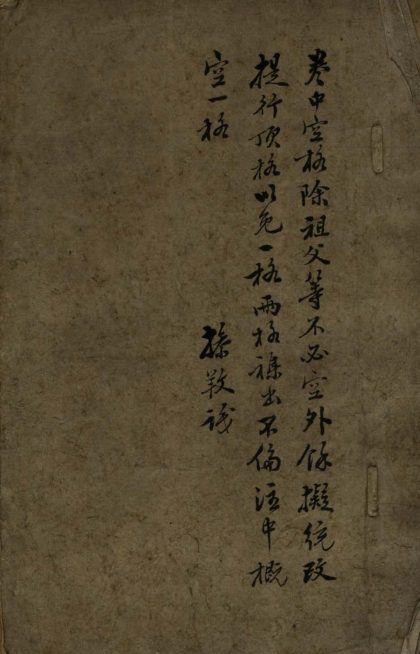 卷中空格除祖父等不必空外餘擬統改
提行頂格以免一格兩格雜出不倫注中概
空一格